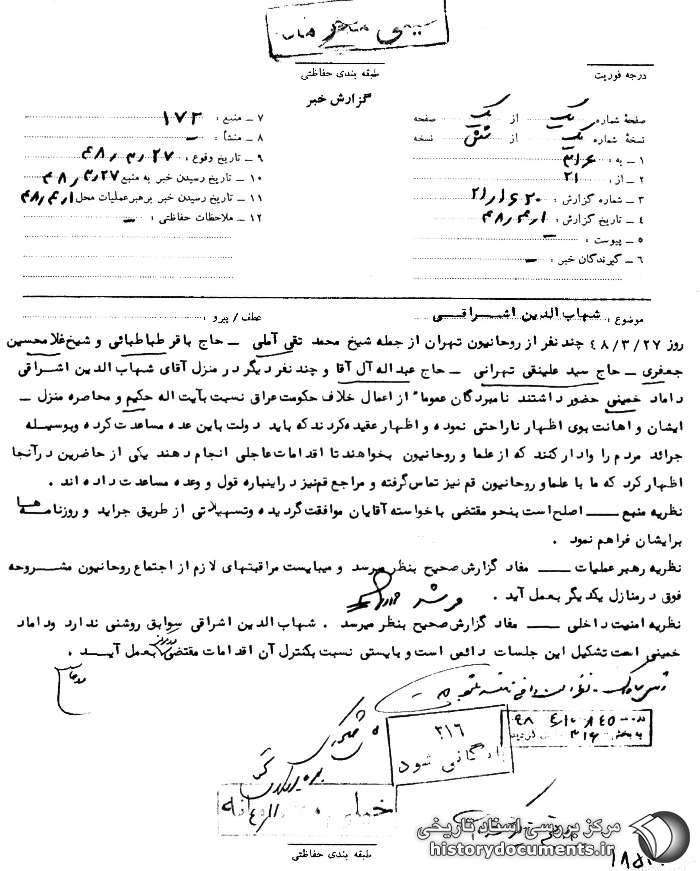 درجه فوریت
طبقه بندی حفاظتی
گزارش خبر
صفحه شماره یک از یک صفحه
نسخه شماره یک از شش نسخه
۱ ـ به : ۳۱۶
۲ ـ از : ۲۱
۳ ـ شماره گزارش :
۴ ـ تاریخ گزارش :
۵ ـ پیوست : ـ
۶ ـ گیرندگان خبر : ـ
۷ ـ منبع : ۱۷۲
۸ ـ منشأ : ـ
۹ ـ تاریخ وقوع : ۲۷ ر ۳ ر ۴۸
۱۰ ـ تاریخ رسیدن خبر به منبع ۲۷ ر ۳ ر ۴۸
۱۱ ـ تاریخ رسیدن خبر برهبرعملیات محل ۱ ر ۴ ر ۴۸
۱۲ ـ ملاحظات حفاظتی : ـ
موضوع : شهاب الدین اشراقی
عطف / پیرو :
روز ۴۸/۳/۲۷ چند نفر از روحانیون تهران از جمله شیخ محمد تقی آملی ـ حاج باقر طباطبائی و شیخ غلامحسین
جعفری ـ حاج سید علینقی تهرانی ـ حاج عبداله آل آقا و چند نفر دیگر در منزل آقای شهاب الدین اشراقی
داماد خمینی حضور داشتند نامبردگان عموما" از اعمال خلاف حکومت عراق نسبت بآیت اله حکیم و محاصره منزل ـ
ایشان و اهانت بوی اظهار ناراحتی نموده و اظهار عقیده کردند که باید دولت باین عده مساعدت کرده و بوسیله
جرائد مردم را وادار کنند که از علما و روحانیون بخواهند تا اقدامات عاجلی انجام دهند یکی از حاضرین در آنجا
اظهار کرد که ما با علما و روحانیون قم نیز تماس گرفته و مراجع قم نیز در اینباره قول و وعده مساعدت داده اند .
نظریه منبع ـــ اصلح است بنحو مقتضی با خواسته آقایان موافقت گردیده و تسهیلاتی از طریق جراید و روزنامه ها
برایشان فراهم نمود .
نظریه رهبر عملیات ـــ مفاد گزارش صحیح بنظر میرسد و میبایست مراقبتهای لازم از اجتماع روحانیون مشروحه
فوق در منازل یکدیگر بعمل آید .
نظریه امنیت داخلی ـــ مفاد گزارش صحیح بنظر میرسد . شهاب الدین اشراقی سوابق روشنی ندارد و داماد
خمینی است تشکیل این جلسات دائمی است و بایستی نسبت بکنترل آن اقدامات مقتضی بعمل آید .
۳۱۶
بایگانی شود
طبقه بندی حفاظتی
مرکز بررسی اسناد تاریخی
historydocuments.ir